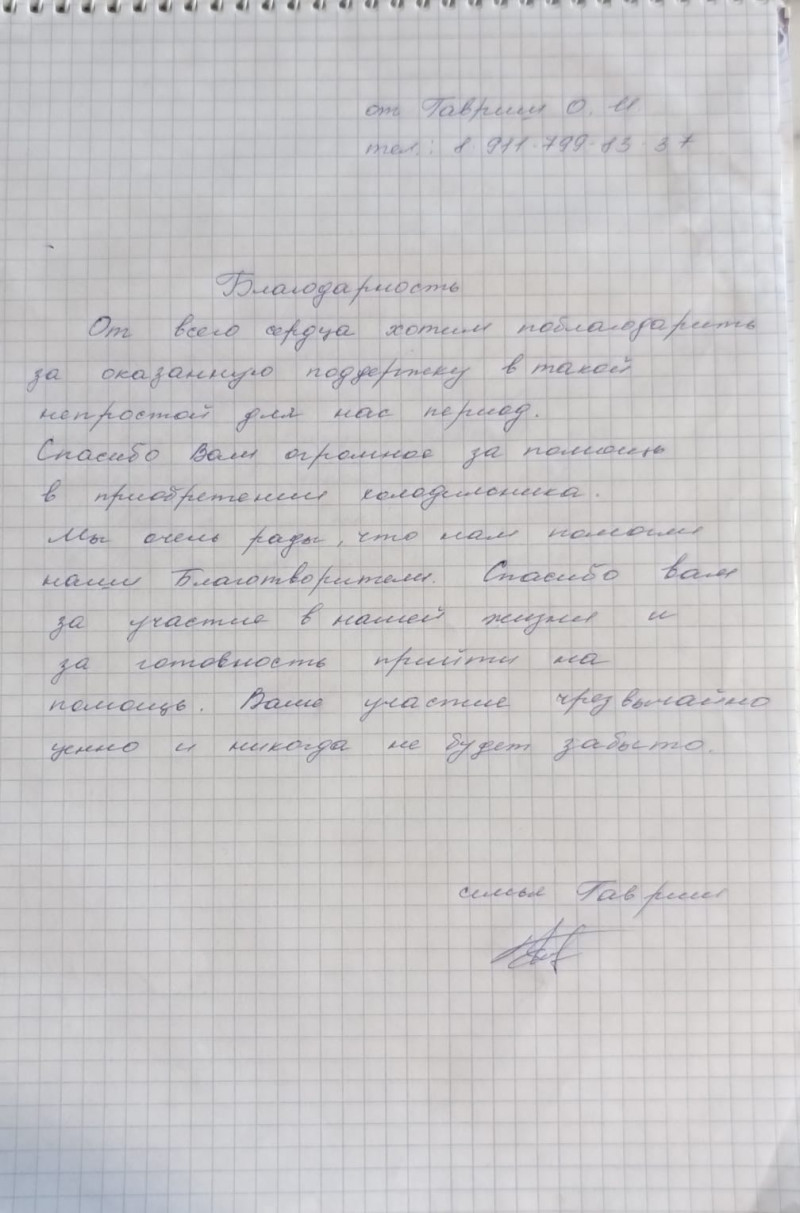 от Гавриш О. И
тел.: 8 911-799-83-37
Благодарность
От всего сердца хотим поблагодарить
за оказанную поддержку в такой
непростой для нас период.
Спасибо Вам огромное за помощь
в приобретении холодильника.
Мы очень рады, что нам помогли
наши Благотворители. Спасибо вам
за участие в нашей жизни и
за готовность прийти на
помощь. Ваше участие чрезвычайно
ценно и никогда не будет забыто.
семья Гавриш